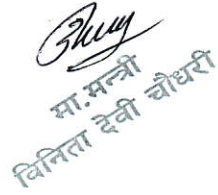 मा. मन्त्री
विनिता देवी चौधरी